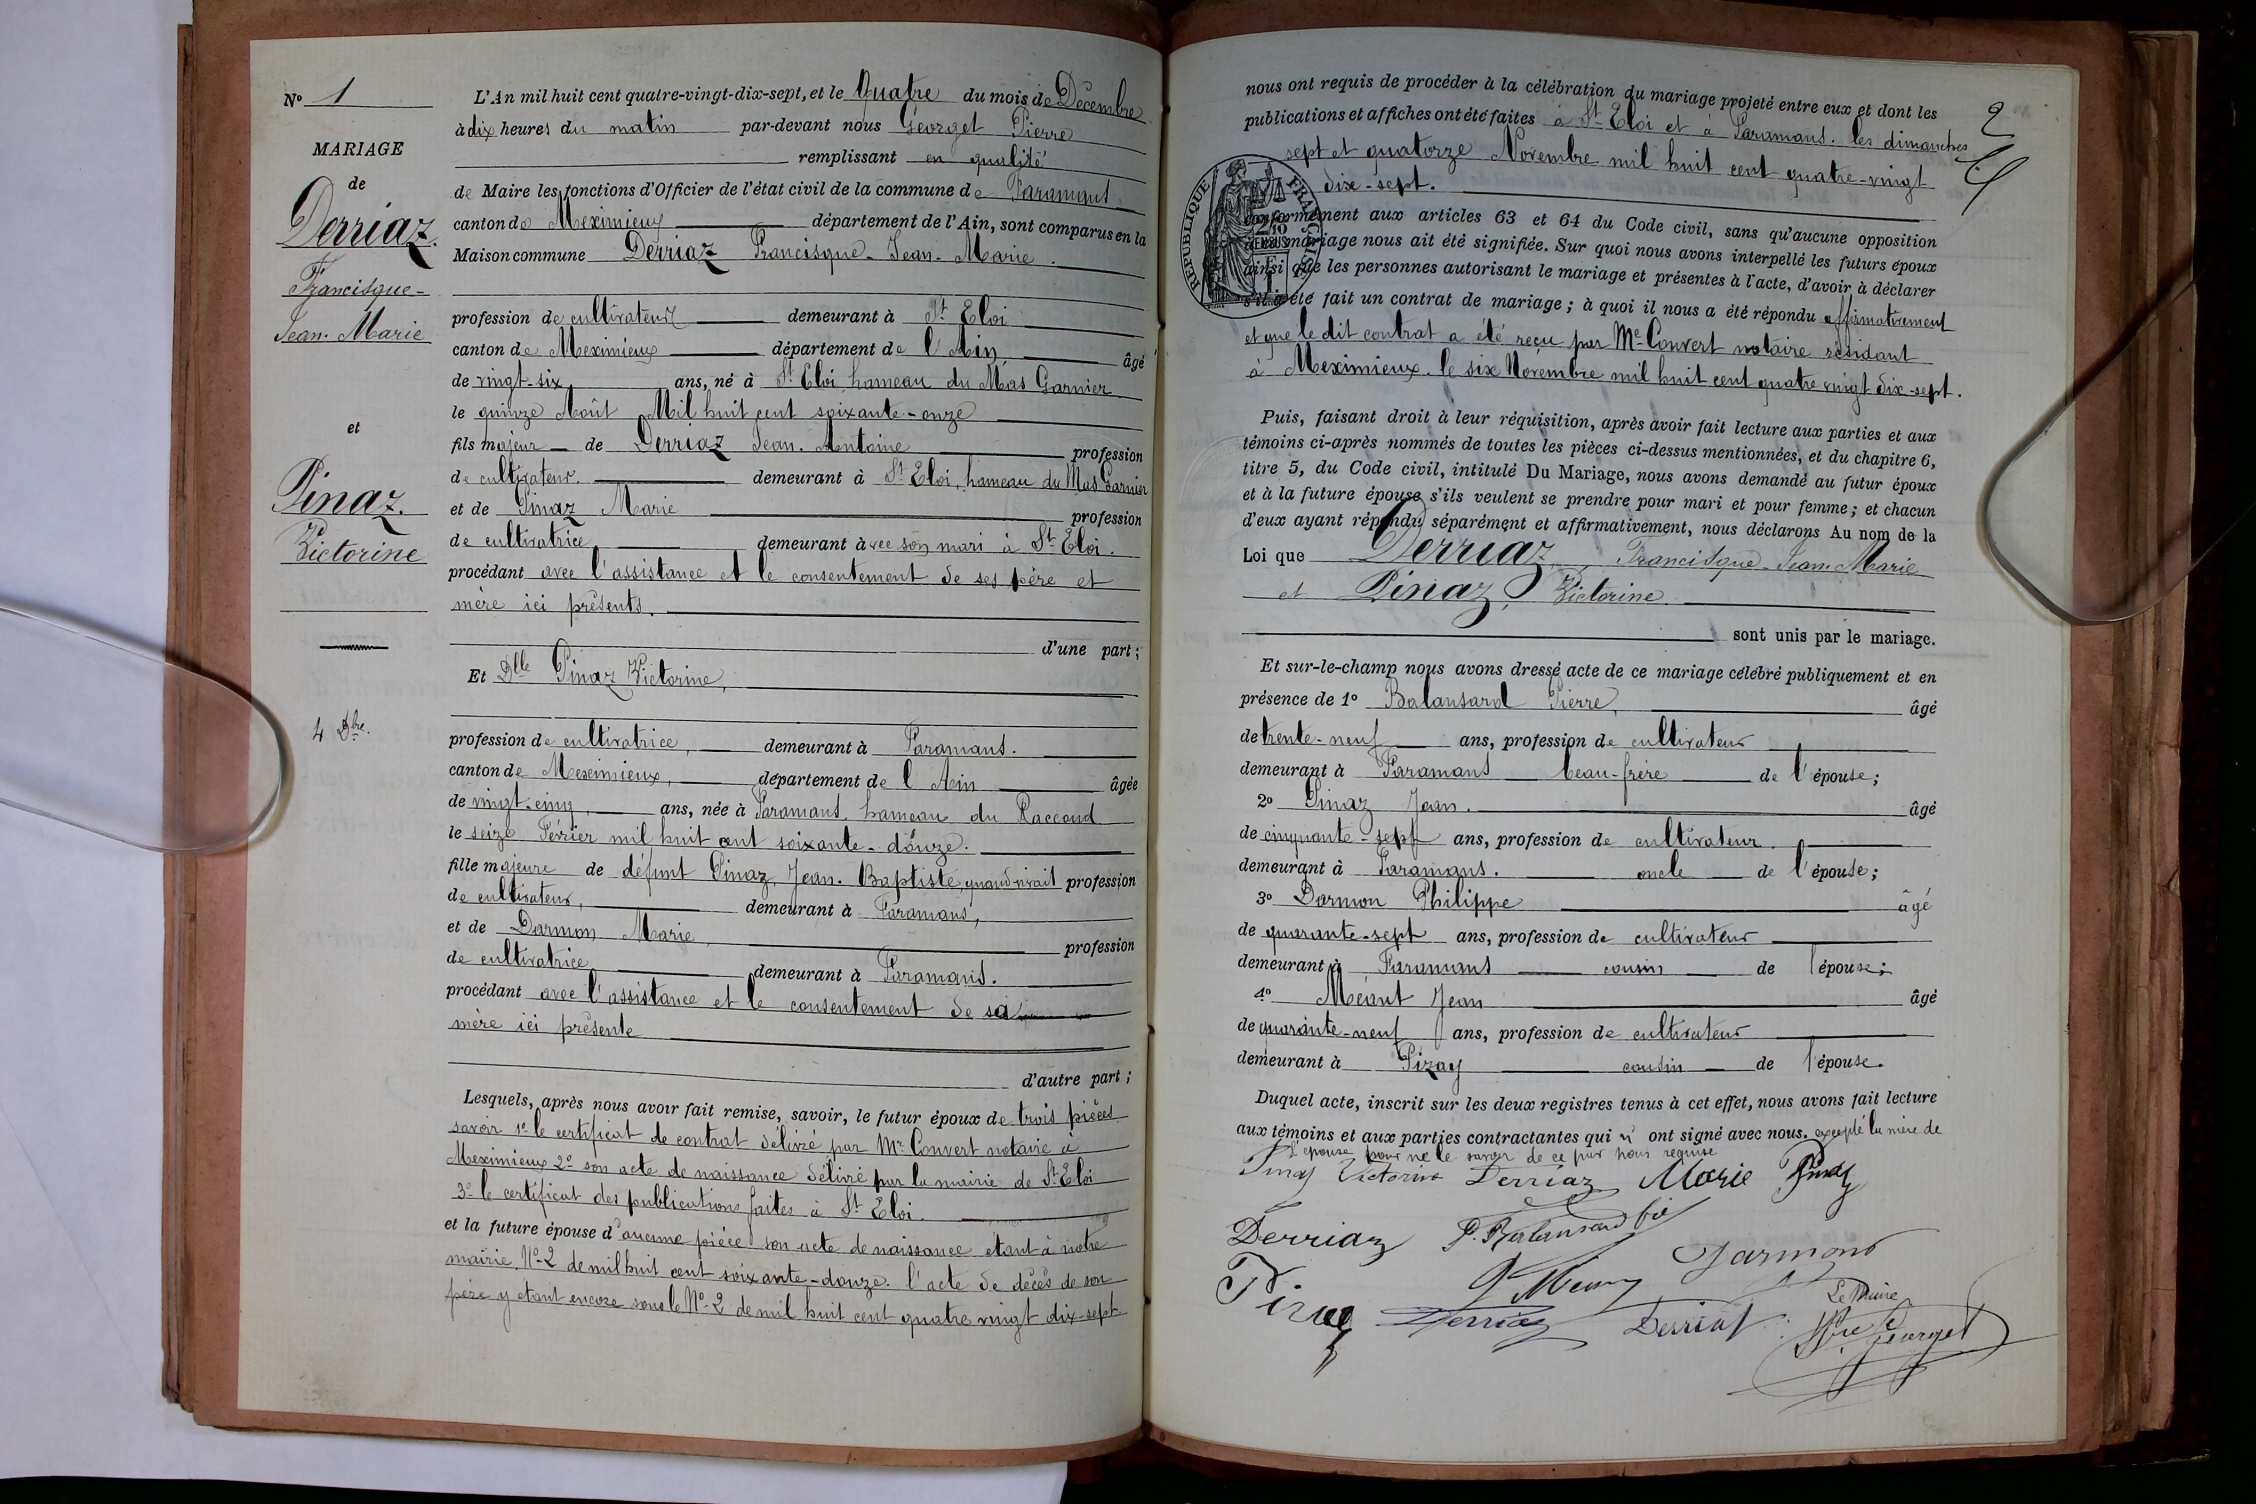 N° 1
MARIAGE
de
Derriaz.
Francisque-
Jean-Marie
et
Pinaz.
Victorine
4 Dbre.
L'An mil huit cent quatre-vingt-dix-sept, et le Quatre du mois de Décembre
à dix heures du matin par-devant nous Georget Pierre
remplissant en qualité
de Maire les fonctions d'Officier de l'état civil de la commune de Faramans
canton de Meximieux département de l'Ain, sont comparus en la
Maison commune Derriaz Francisque-Jean-Marie.
profession de cultivateur demeurant à St Eloi
canton de Meximieux département de l'Ain âgé
de vingt-six ans, né à St Eloi, hameau du Mas Garnier
le quinze Août Mil huit cent soixante-onze
fils majeur de Derriaz Jean-Antoine profession
de cultivateur. demeurant à St Eloi, hameau du Mas Garnier
et de Pinaz Marie profession
de cultivatrice demeurant avec son mari à St Eloi.
procédant avec l'assistance et le consentement de ses père et
mère ici présents.
d'une part;
Et Dlle Pinaz Victorine,
profession de cultivatrice, demeurant à Faramans.
canton de Meximieux, département de l'Ain âgée
de vingt-cinq ans, née à Faramans, hameau du Raccoud
le seize Février mil huit cent soixante-douze.
fille majeure de défunt Pinaz, Jean-Baptiste quand vivait profession
de cultivateur, demeurant à Faramans,
et de Darmon Marie, profession
de cultivatrice demeurant à Faramans.
procédant avec l'assistance et le consentement de sa
mère ici présente
d'autre part;
Lesquels, après nous avoir fait remise, savoir, le futur époux de trois pièces
savoir 1° le certificat de contrat délivré par Mr Convert notaire à
Meximieux 2° son acte de naissance délivré par la mairie de St Eloi
3° le certificat des publications faites à St Eloi.
et la future épouse d'aucune pièce son acte de naissance étant à notre
mairie, N° 2 de mil huit cent soixante-douze. l'acte de décès de son
père y étant encore sous le N° 2 de mil huit cent quatre vingt dix-sept
2
nous ont requis de procéder à la célébration du mariage projeté entre eux et dont les
publications et affiches ont été faites à St Eloi et à Faramans. les dimanches
sept et quatorze Novembre mil huit cent quatre-vingt
dix-sept.
RÉPUBLIQUE FRANÇAISE
conformément aux articles 63 et 64 du Code civil, sans qu'aucune opposition
au mariage nous ait été signifiée. Sur quoi nous avons interpellé les futurs époux
ainsi que les personnes autorisant le mariage et présentes à l'acte, d'avoir à déclarer
s'il a été fait un contrat de mariage; à quoi il nous a été répondu affirmativement
et que le dit contrat a été reçu par Me Convert notaire résidant
à Meximieux. le six Novembre mil huit cent quatre vingt dix-sept.
Puis, faisant droit à leur réquisition, après avoir fait lecture aux parties et aux
témoins ci-après nommés de toutes les pièces ci-dessus mentionnées, et du chapitre 6,
titre 5, du Code civil, intitulé Du Mariage, nous avons demandé au futur époux
et à la future épouse s'ils veulent se prendre pour mari et pour femme; et chacun
d'eux ayant répondu séparément et affirmativement, nous déclarons Au nom de la
Loi que Derriaz Francisque-Jean-Marie
et Pinaz, Victorine.
sont unis par le mariage.
Et sur-le-champ nous avons dressé acte de ce mariage célébré publiquement et en
présence de 1° Balansard Pierre, âgé
de trente-neuf ans, profession de cultivateur
demeurant à Faramans beau-frère de l'épouse;
2° Pinaz Jean. âgé
de cinquante-sept ans, profession de cultivateur.
demeurant à Faramans. oncle de l'épouse;
3° Darmon Philippe âgé
de quarante-sept ans, profession de cultivateur
demeurant à Faramans cousin de l'épouse;
4° Méant Jean âgé
de quarante-neuf ans, profession de cultivateur
demeurant à Pizay cousin de l'épouse.
Duquel acte, inscrit sur les deux registres tenus à cet effet, nous avons fait lecture
aux témoins et aux parties contractantes qui ont signé avec nous. excepté la mère de
l'épouse pour ne le savoir de ce par nous requise
Pinaz Victorine Derriaz Marie Pinaz
Derriaz P. Balansard Darmond
Pinaz Derriaz Derriaz
Le Maire
Georget